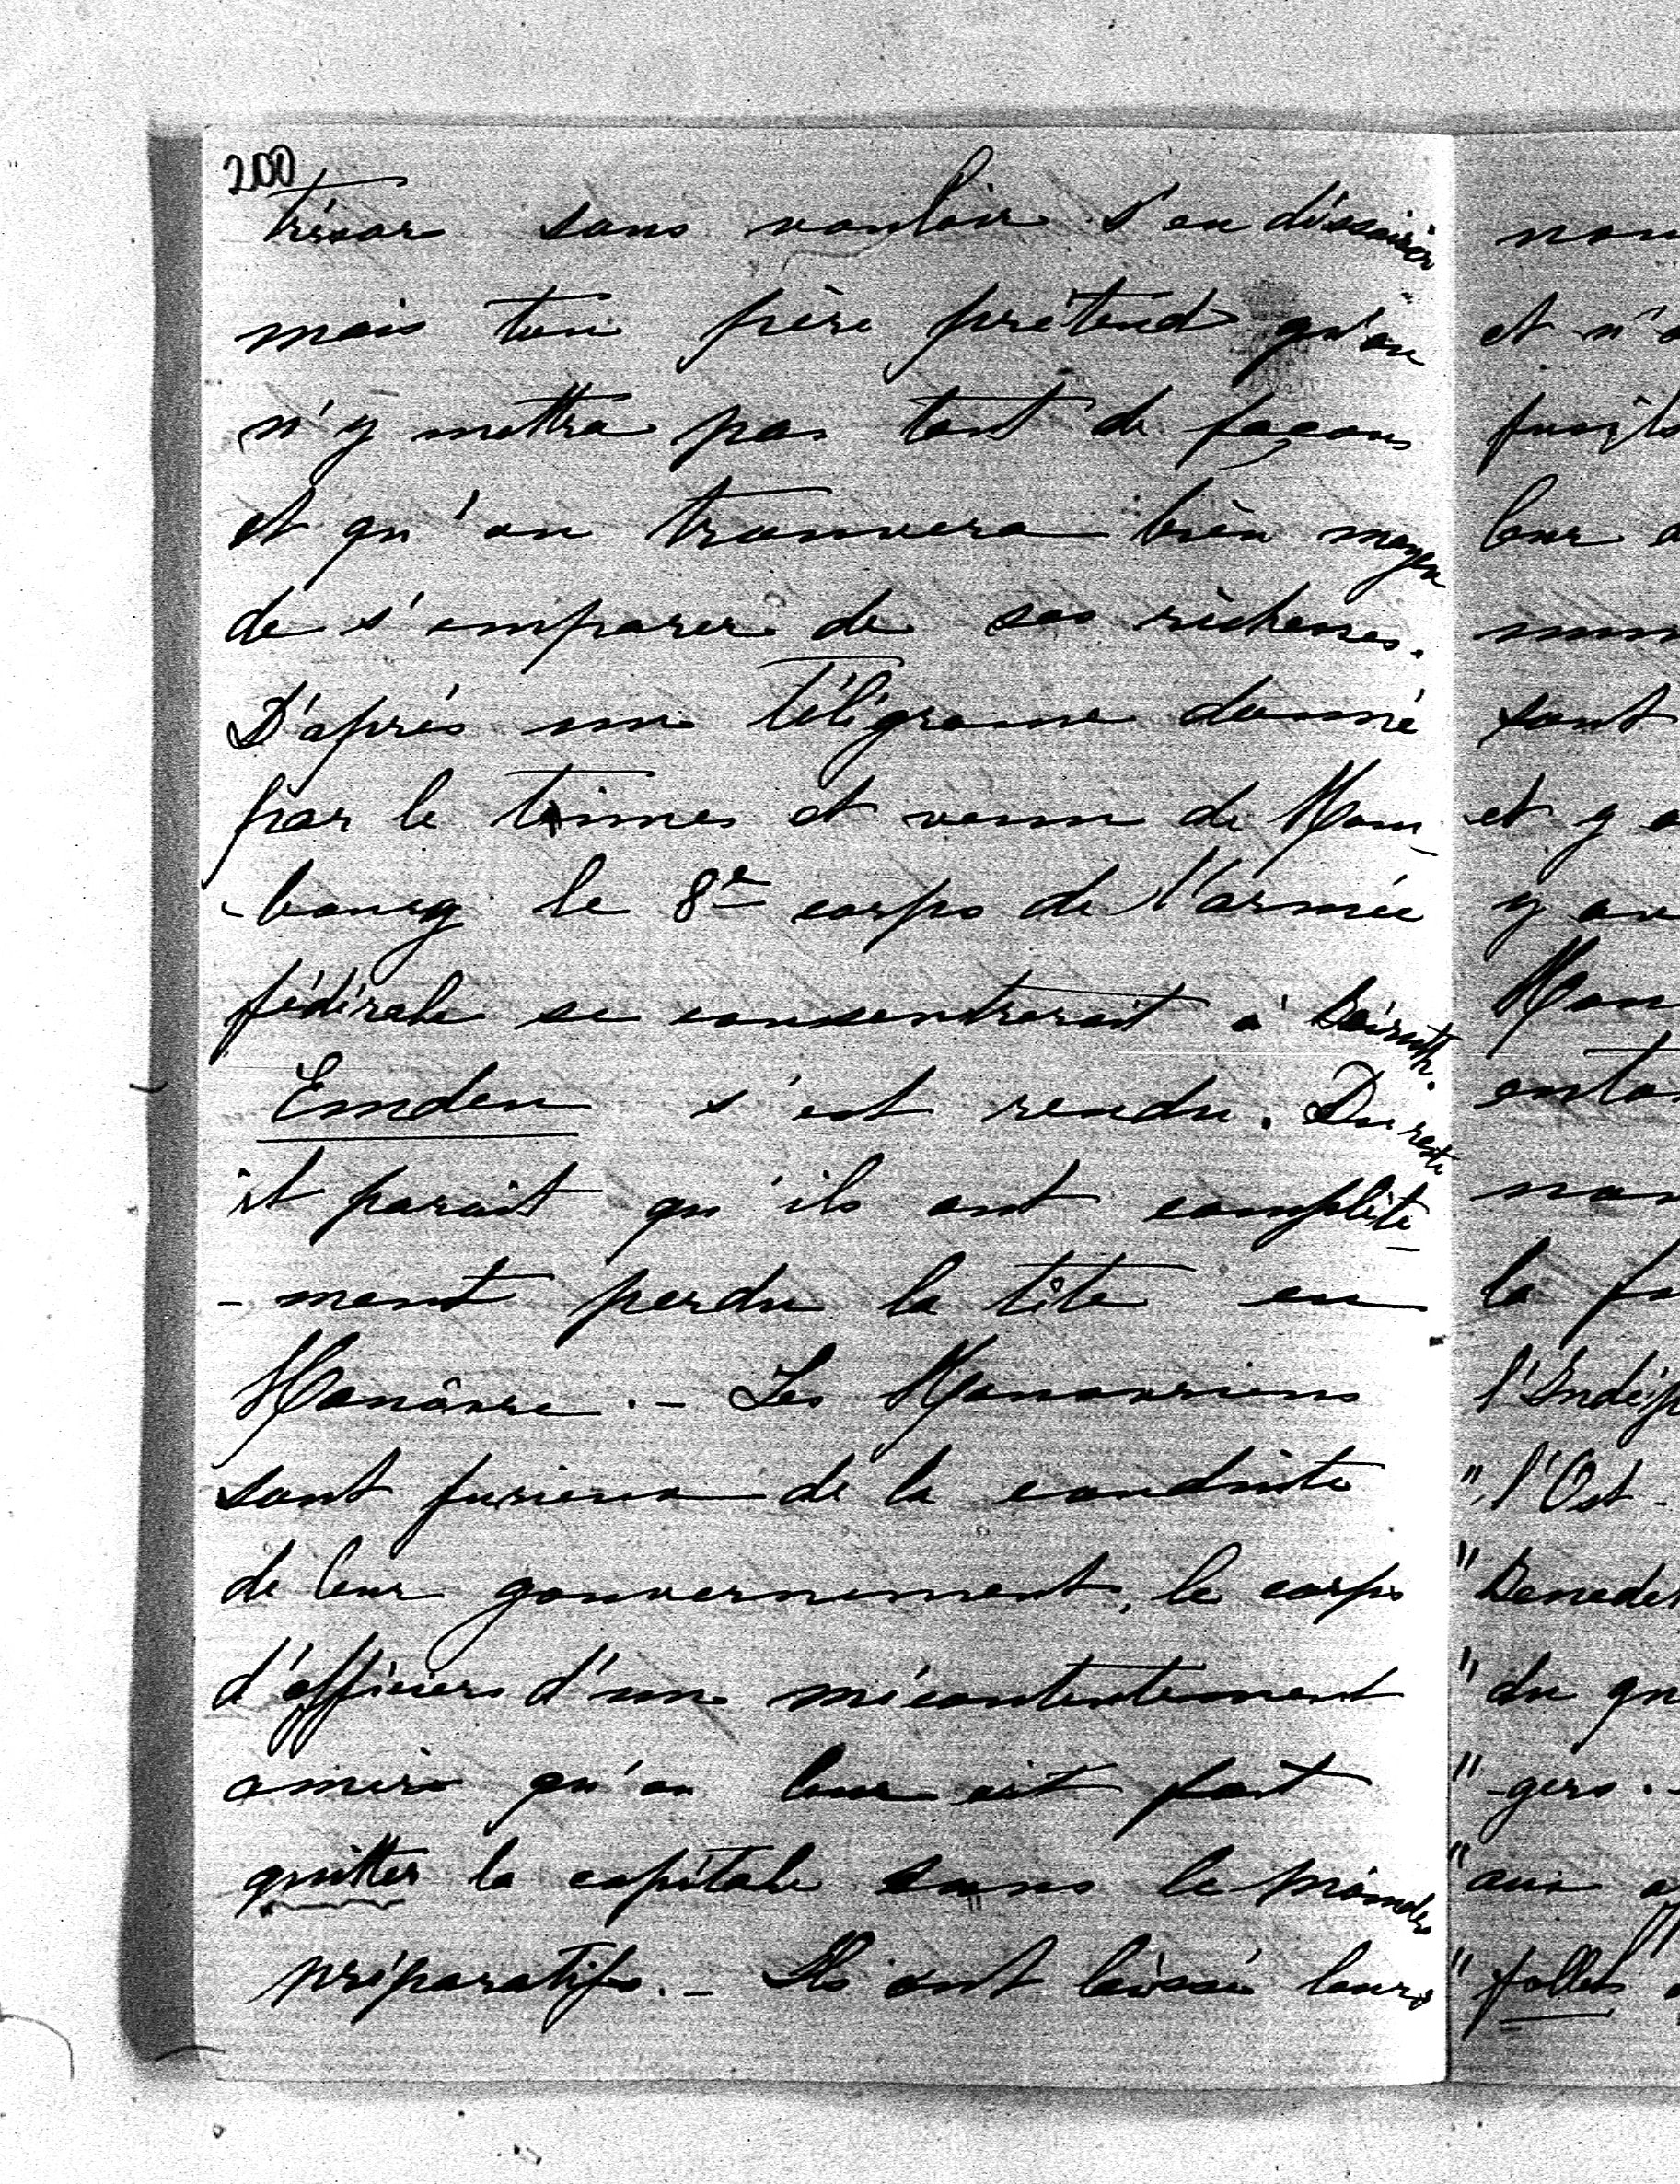 200
trésor sans vouloir s'en déssaisir
mais ton père prétend qu'on
n'y mettra pas tant de façons
et qu'on trouvera bien moyen
de s'emparer de ses richesses.
D'après un télégramme donné
par le times et venu de Ham-
-bourg le 8e corps de l'armée
fédérale se consentrerait à Bairuth.
Emden s'est rendu. Du reste
il parait qu'ils ont complète-
-ment perdu la tête en
Hanôvre. - Les Hanovriens
sont furieux de la conduite
de leur gouvernement, le corps
d'officiers d'un mécontentement
amère qu'on leur ait fait
quitter la capitale sans le moindre
préparatifs. - Ils ont laissé leurs
et n'
leur
sont
et y
l'Indép
"l'Ost-
"Benede
"du qu
"-gers.
"aux
"follets